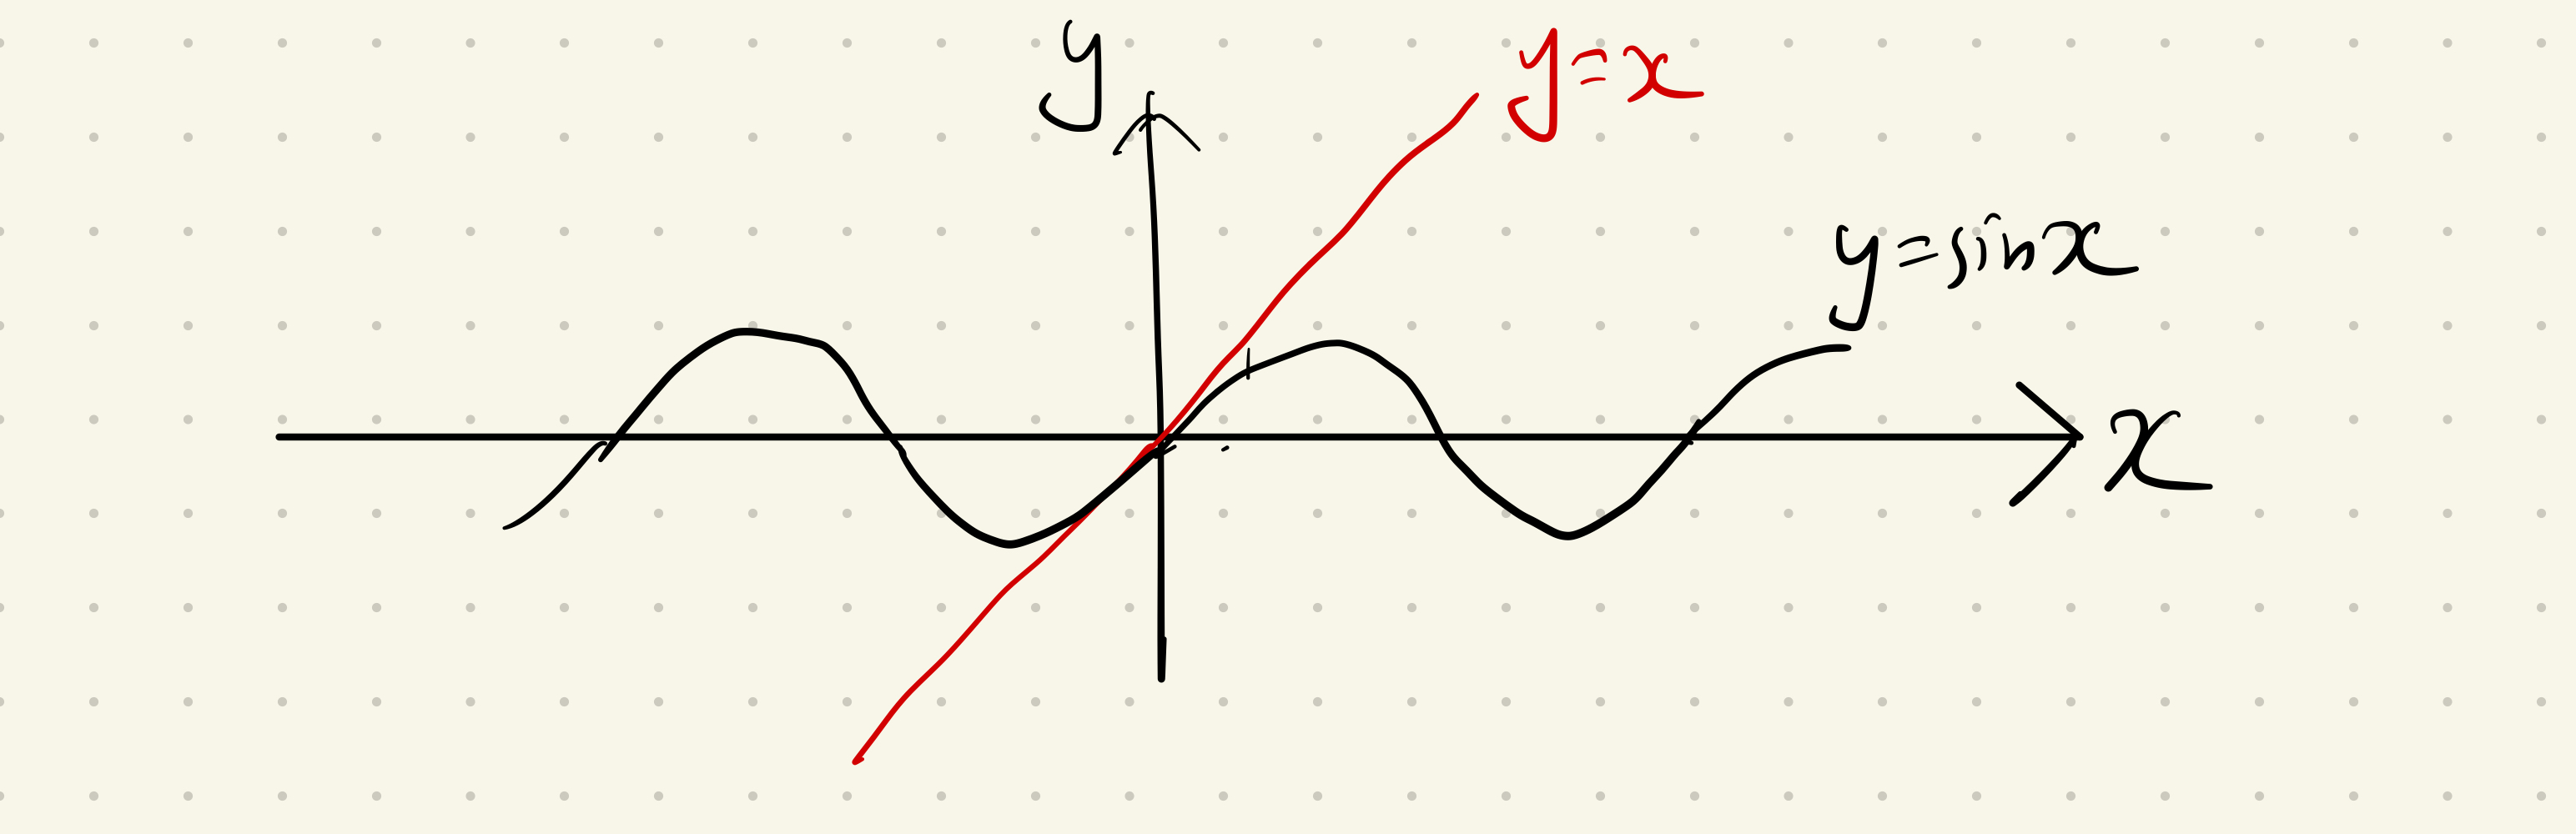 y
y=x
y=sinx
x